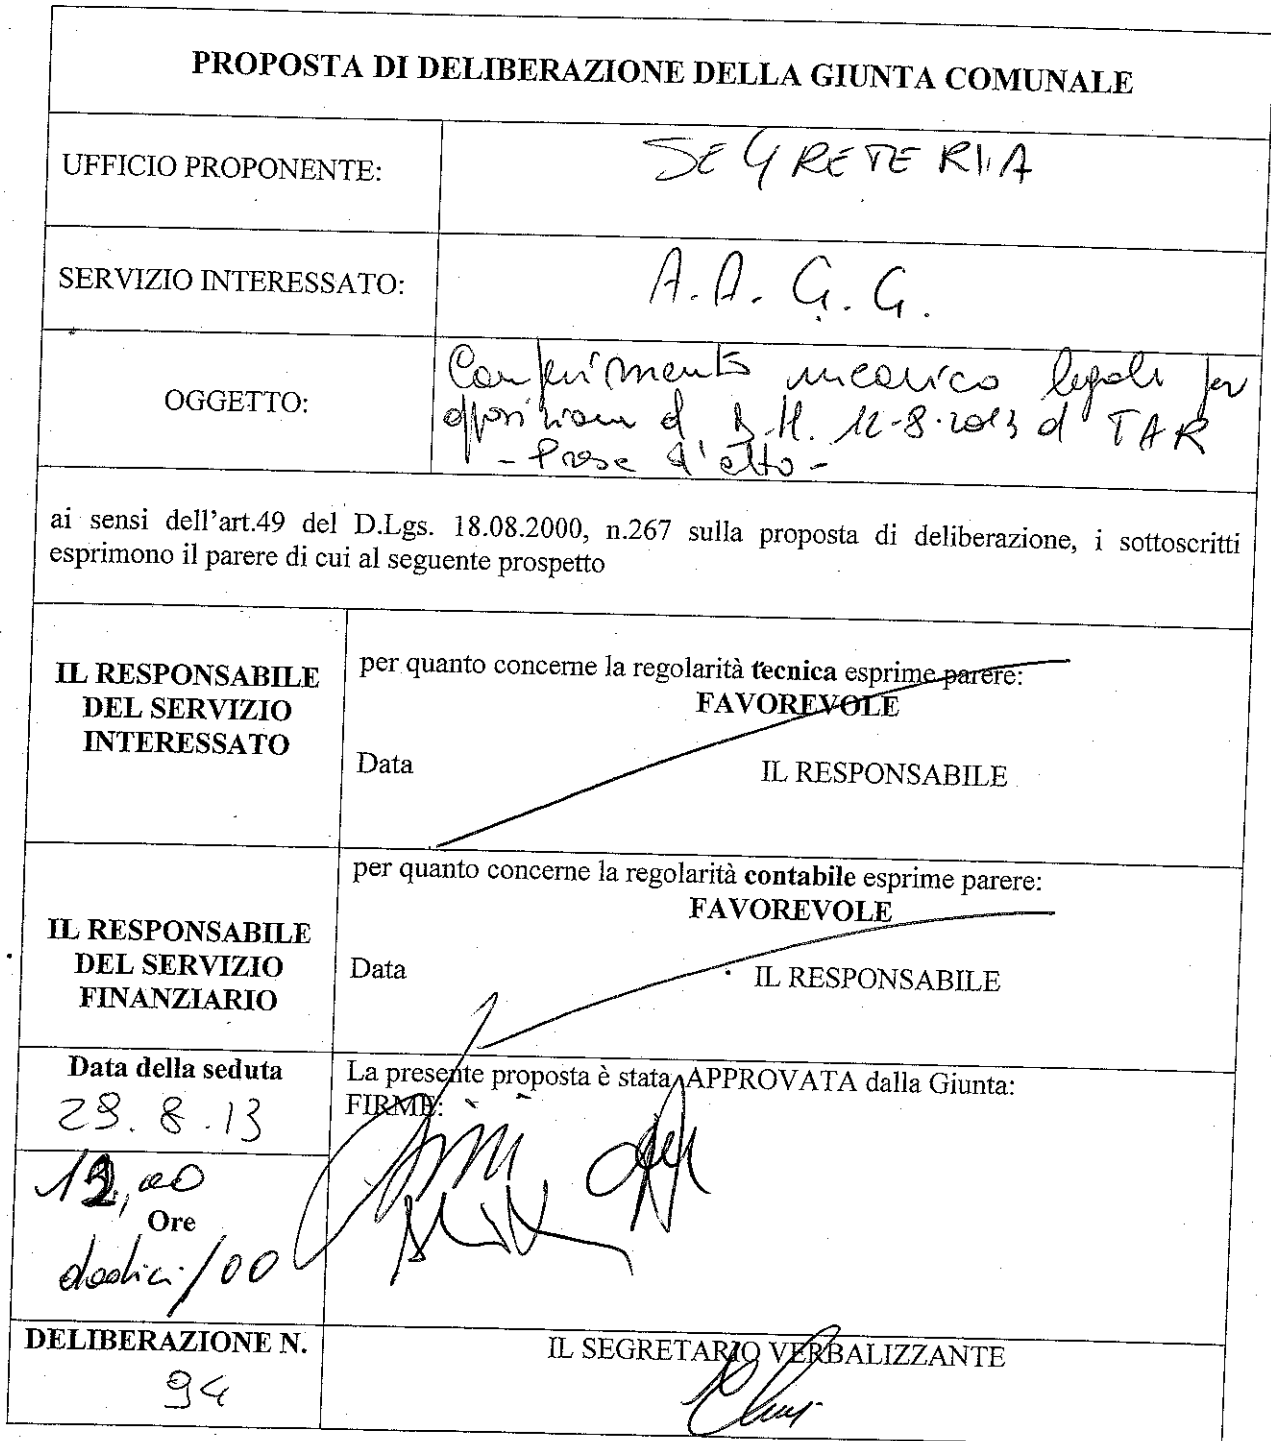 PROPOSTA DI DELIBERAZIONE DELLA GIUNTA COMUNALE
UFFICIO PROPONENTE:
SEGRETERIA
SERVIZIO INTERESSATO:
A.A. G.G.
OGGETTO:
Conferimento incarico legale per
opposizione al D.M. 12-8-2013 al TAR
- Presa d'atto -
ai sensi dell'art.49 del D.Lgs. 18.08.2000, n.267 sulla proposta di deliberazione, i sottoscritti
esprimono il parere di cui al seguente prospetto
IL RESPONSABILE
DEL SERVIZIO
INTERESSATO
per quanto concerne la regolarità tecnica esprime parere:
FAVOREVOLE
Data IL RESPONSABILE
IL RESPONSABILE
DEL SERVIZIO
FINANZIARIO
per quanto concerne la regolarità contabile esprime parere:
FAVOREVOLE
Data IL RESPONSABILE
Data della seduta
29.8.13
La presente proposta è stata APPROVATA dalla Giunta:
FIRME:
12,00
Ore
dodici/00
DELIBERAZIONE N.
94
IL SEGRETARIO VERBALIZZANTE